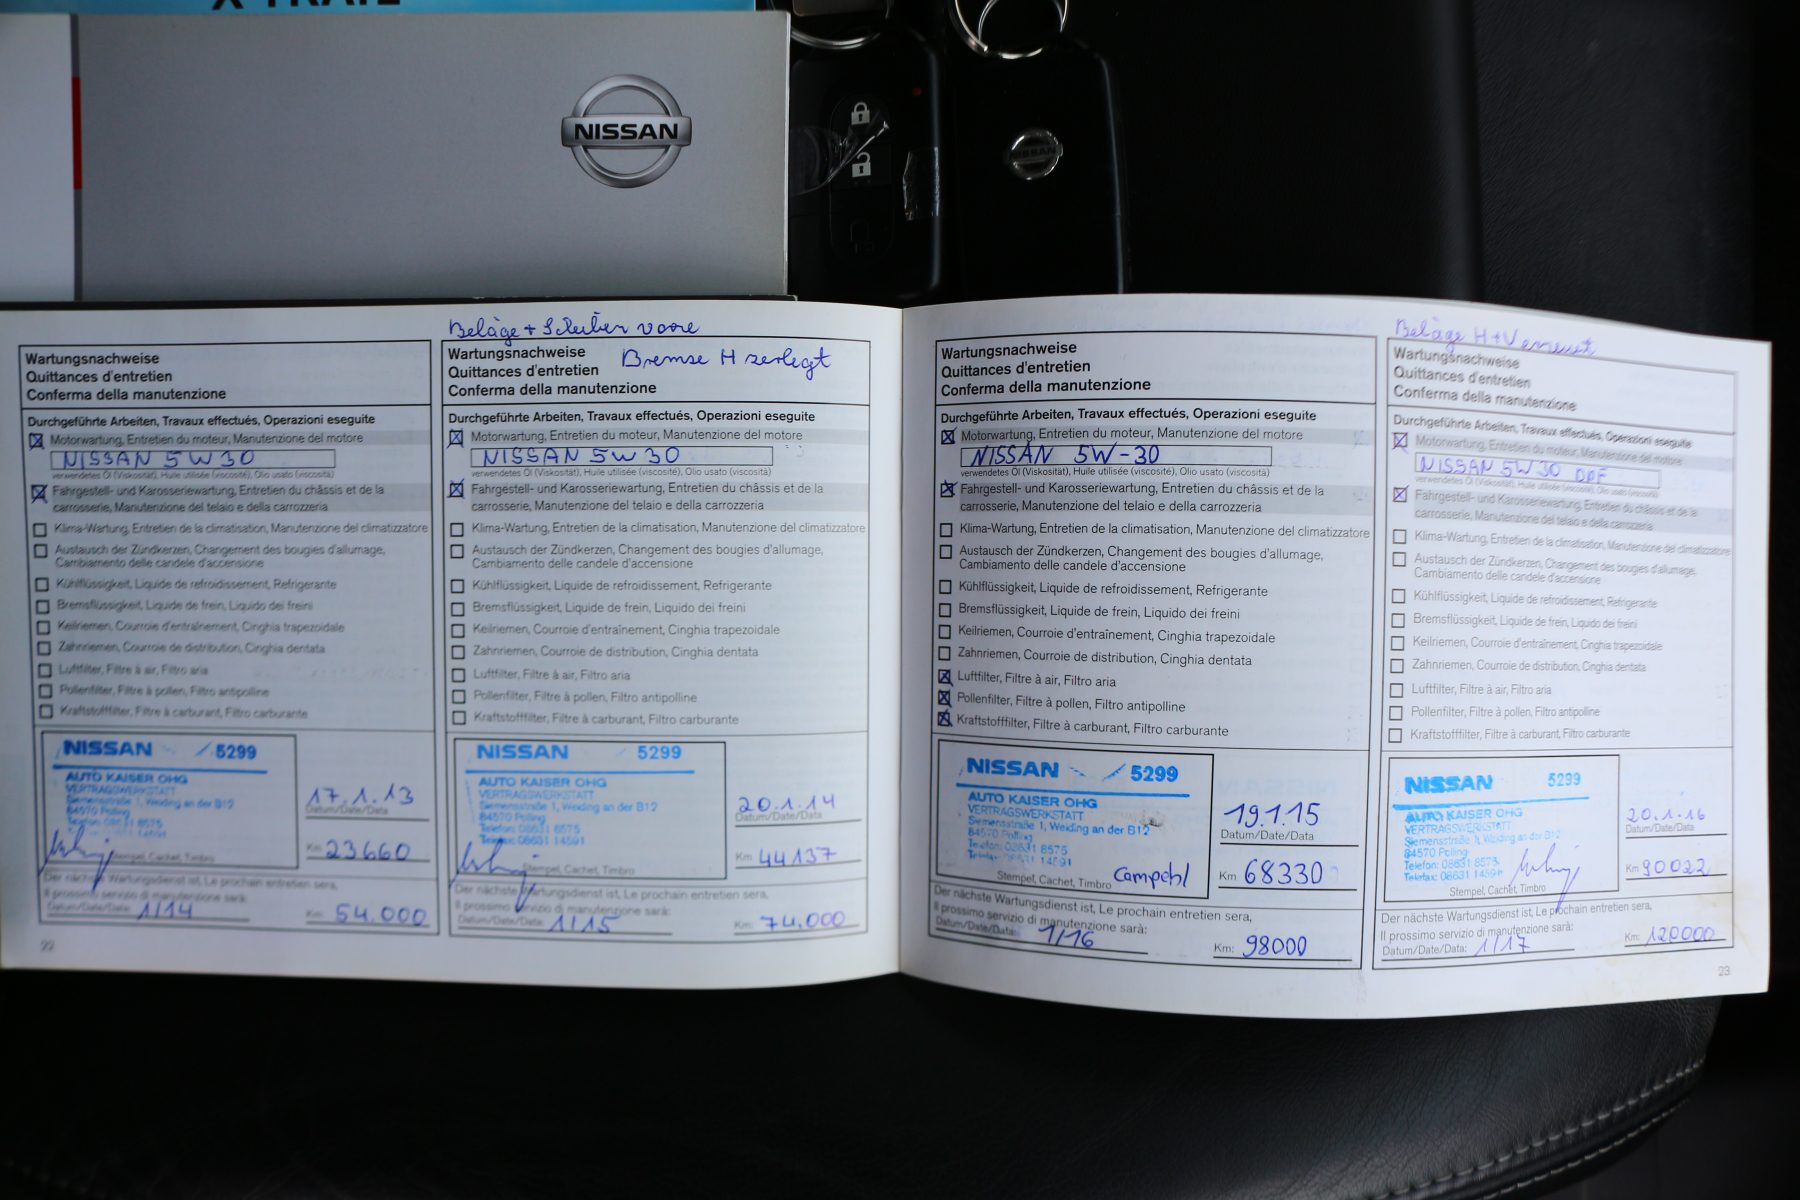 X-TRAIL
NISSAN
NISSAN
Beläge + Scheiben vorne
Wartungsnachweise
Quittances d'entretien
Conferma della manutenzione
Durchgeführte Arbeiten, Travaux effectués, Operazioni eseguite
Motorwartung, Entretien du moteur, Manutenzione del motore
NISSAN 5W30
verwendetes Öl (Viskosität), Huile utilisée (viscosité), Olio usato (viscosità)
Fahrgestell- und Karosseriewartung, Entretien du châssis et de la
carrosserie, Manutenzione del telaio e della carrozzeria
Klima-Wartung, Entretien de la climatisation, Manutenzione del climatizzatore
Austausch der Zündkerzen, Changement des bougies d'allumage,
Cambiamento delle candele d'accensione
Kühlflüssigkeit, Liquide de refroidissement, Refrigerante
Bremsflüssigkeit, Liquide de frein, Liquido dei freini
Keilriemen, Courroie d'entraînement, Cinghia trapezoidale
Zahnriemen, Courroie de distribution, Cinghia dentata
Luftfilter, Filtre à air, Filtro aria
Pollenfilter, Filtre à pollen, Filtro antipolline
Kraftstofffilter, Filtre à carburant, Filtro carburante
NISSAN 5299
AUTO KAISER OHG
VERTRAGSWERKSTATT
Siemensstraße 1, Weiding an der B12
84570 Polling
Telefon: 08631 8575
Telefax: 08631 14591
Stempel, Cachet, Timbro
17.1.13
Datum/Date/Data
Km 23660
Der nächste Wartungsdienst ist, Le prochain entretien sera,
Il prossimo servizio di manutenzione sarà:
Datum/Date/Data: 1/14 Km: 54.000
22
Wartungsnachweise
Quittances d'entretien
Conferma della manutenzione
Bremse H zerlegt
Durchgeführte Arbeiten, Travaux effectués, Operazioni eseguite
Motorwartung, Entretien du moteur, Manutenzione del motore
NISSAN 5W30
verwendetes Öl (Viskosität), Huile utilisée (viscosité), Olio usato (viscosità)
Fahrgestell- und Karosseriewartung, Entretien du châssis et de la
carrosserie, Manutenzione del telaio e della carrozzeria
Klima-Wartung, Entretien de la climatisation, Manutenzione del climatizzatore
Austausch der Zündkerzen, Changement des bougies d'allumage,
Cambiamento delle candele d'accensione
Kühlflüssigkeit, Liquide de refroidissement, Refrigerante
Bremsflüssigkeit, Liquide de frein, Liquido dei freini
Keilriemen, Courroie d'entraînement, Cinghia trapezoidale
Zahnriemen, Courroie de distribution, Cinghia dentata
Luftfilter, Filtre à air, Filtro aria
Pollenfilter, Filtre à pollen, Filtro antipolline
Kraftstofffilter, Filtre à carburant, Filtro carburante
NISSAN 5299
AUTO KAISER OHG
VERTRAGSWERKSTATT
Siemensstraße 1, Weiding an der B12
84570 Polling
Telefon: 08631 8575
Telefax: 08631 14591
Stempel, Cachet, Timbro
20.1.14
Datum/Date/Data
Km 44137
Der nächste Wartungsdienst ist, Le prochain entretien sera,
Il prossimo servizio di manutenzione sarà:
Datum/Date/Data: 1/15 Km: 74.000
Wartungsnachweise
Quittances d'entretien
Conferma della manutenzione
Durchgeführte Arbeiten, Travaux effectués, Operazioni eseguite
Motorwartung, Entretien du moteur, Manutenzione del motore
NISSAN 5W-30
verwendetes Öl (Viskosität), Huile utilisée (viscosité), Olio usato (viscosità)
Fahrgestell- und Karosseriewartung, Entretien du châssis et de la
carrosserie, Manutenzione del telaio e della carrozzeria
Klima-Wartung, Entretien de la climatisation, Manutenzione del climatizzatore
Austausch der Zündkerzen, Changement des bougies d'allumage,
Cambiamento delle candele d'accensione
Kühlflüssigkeit, Liquide de refroidissement, Refrigerante
Bremsflüssigkeit, Liquide de frein, Liquido dei freini
Keilriemen, Courroie d'entraînement, Cinghia trapezoidale
Zahnriemen, Courroie de distribution, Cinghia dentata
Luftfilter, Filtre à air, Filtro aria
Pollenfilter, Filtre à pollen, Filtro antipolline
Kraftstofffilter, Filtre à carburant, Filtro carburante
NISSAN 5299
AUTO KAISER OHG
VERTRAGSWERKSTATT
Siemensstraße 1, Weiding an der B12
84570 Polling
Telefon: 08631 8575
Telefax: 08631 14591
Stempel, Cachet, Timbro Campehl
19.1.15
Datum/Date/Data
Km 68330
Der nächste Wartungsdienst ist, Le prochain entretien sera,
Il prossimo servizio di manutenzione sarà:
Datum/Date/Data: 1/16 Km: 98000
Beläge H+V erneuert
Wartungsnachweise
Quittances d'entretien
Conferma della manutenzione
Durchgeführte Arbeiten, Travaux effectués, Operazioni eseguite
Motorwartung, Entretien du moteur, Manutenzione del motore
NISSAN 5W30 DPF
verwendetes Öl (Viskosität), Huile utilisée (viscosité), Olio usato (viscosità)
Fahrgestell- und Karosseriewartung, Entretien du châssis et de la
carrosserie, Manutenzione del telaio e della carrozzeria
Klima-Wartung, Entretien de la climatisation, Manutenzione del climatizzatore
Austausch der Zündkerzen, Changement des bougies d'allumage,
Cambiamento delle candele d'accensione
Kühlflüssigkeit, Liquide de refroidissement, Refrigerante
Bremsflüssigkeit, Liquide de frein, Liquido dei freini
Keilriemen, Courroie d'entraînement, Cinghia trapezoidale
Zahnriemen, Courroie de distribution, Cinghia dentata
Luftfilter, Filtre à air, Filtro aria
Pollenfilter, Filtre à pollen, Filtro antipolline
Kraftstofffilter, Filtre à carburant, Filtro carburante
NISSAN 5299
AUTO KAISER OHG
VERTRAGSWERKSTATT
Siemensstraße 1, Weiding an der B12
84570 Polling
Telefon: 08631 8575
Telefax: 08631 14591
Stempel, Cachet, Timbro
20.1.16
Datum/Date/Data
Km 90022
Der nächste Wartungsdienst ist, Le prochain entretien sera,
Il prossimo servizio di manutenzione sarà:
Datum/Date/Data: 1/17 Km: 120000
23